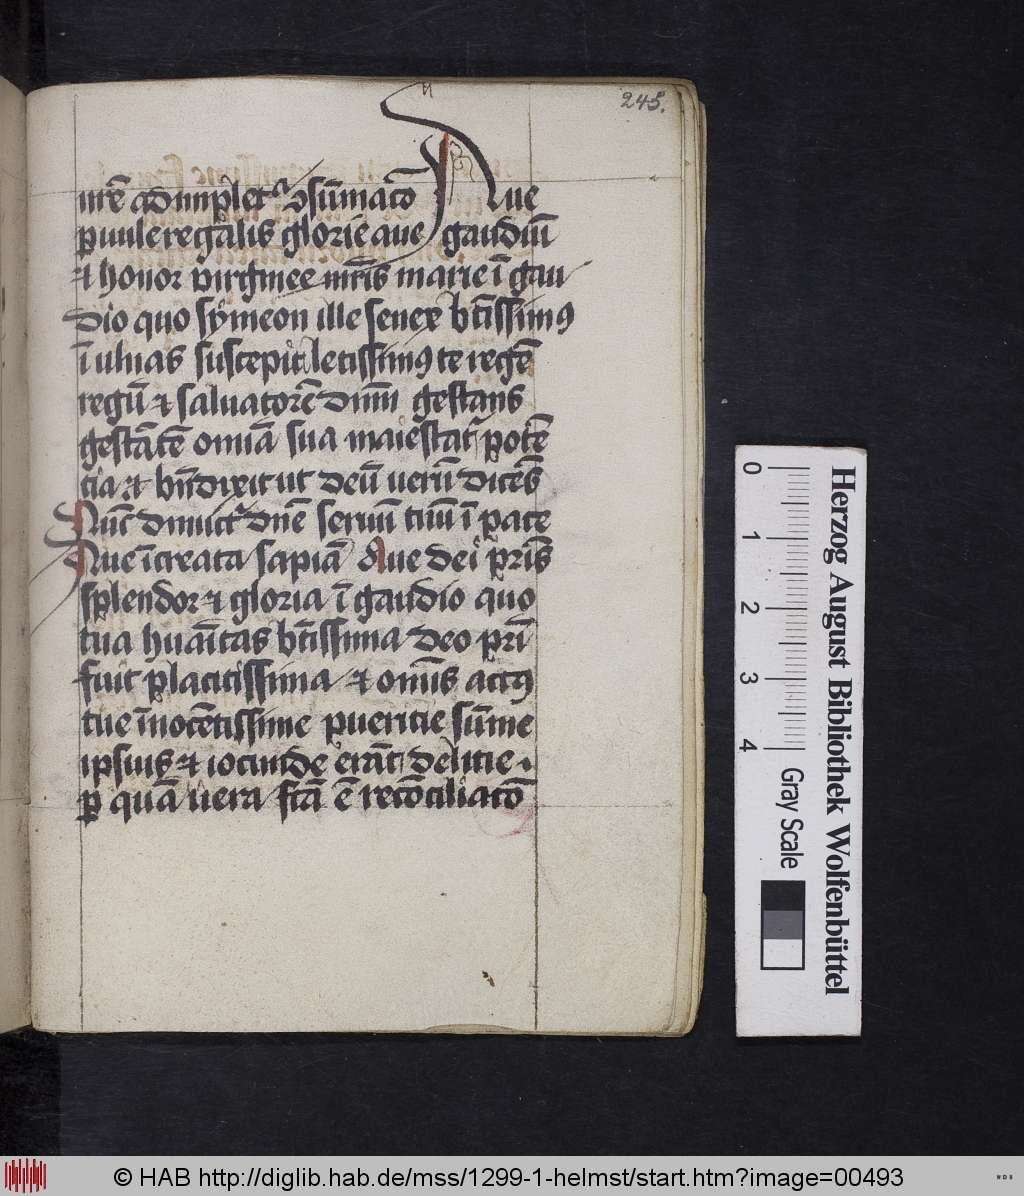 245.
nr̄e complet᷑ ꝯsūmatō Aue
puule regalis glorie aue gaudiū
⁊ honor virginee mr̄is marie ī gau
dio quo sȳmeon ille senex bt̄issimꝰ
ī ulnas suscepit letissimꝰ te regē
regū ⁊ saluatorē dn̄m gestans
gestātē om̄ia sua maiestat᷑ potē
tia ⁊ bn̄dixit ut deū uerū dicēs
Nūc dimict᷑ dn̄e seruū tuū ī pace
Aue īcreata sapiā Aue dei pr̄is
splendor ⁊ gloria ī gaudio quo
tua huāitas bt̄issima deo pr̄i
fuit placitissima ⁊ om̄is actꝰ
tue īnocētissime pueritie sūme
ipsius ⁊ iocunde erāt delitie .
ꝑ quā uera fcā ē recōciliatō
0 1 2 3 4
Gray Scale
Herzog August Bibliothek Wolfenbüttel
© HAB http://diglib.hab.de/mss/1299-1-helmst/start.htm?image=00493